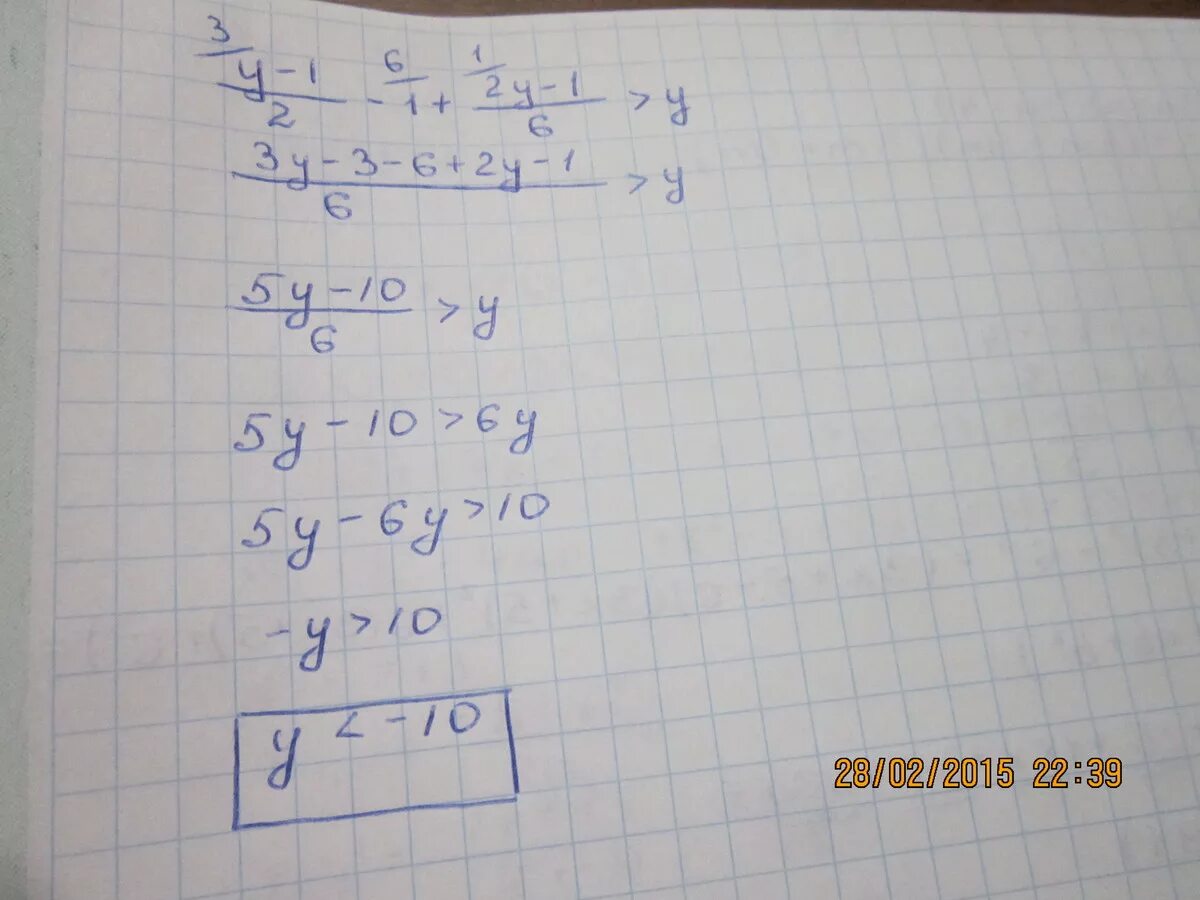 3 6 1
y-1 - 1 + 2y-1 > y
2 6
3y-3-6+2y-1 > y
6
5y-10 > y
6
5y-10>6y
5y-6y>10
-y>10
y<-10
28/02/2015 22:39